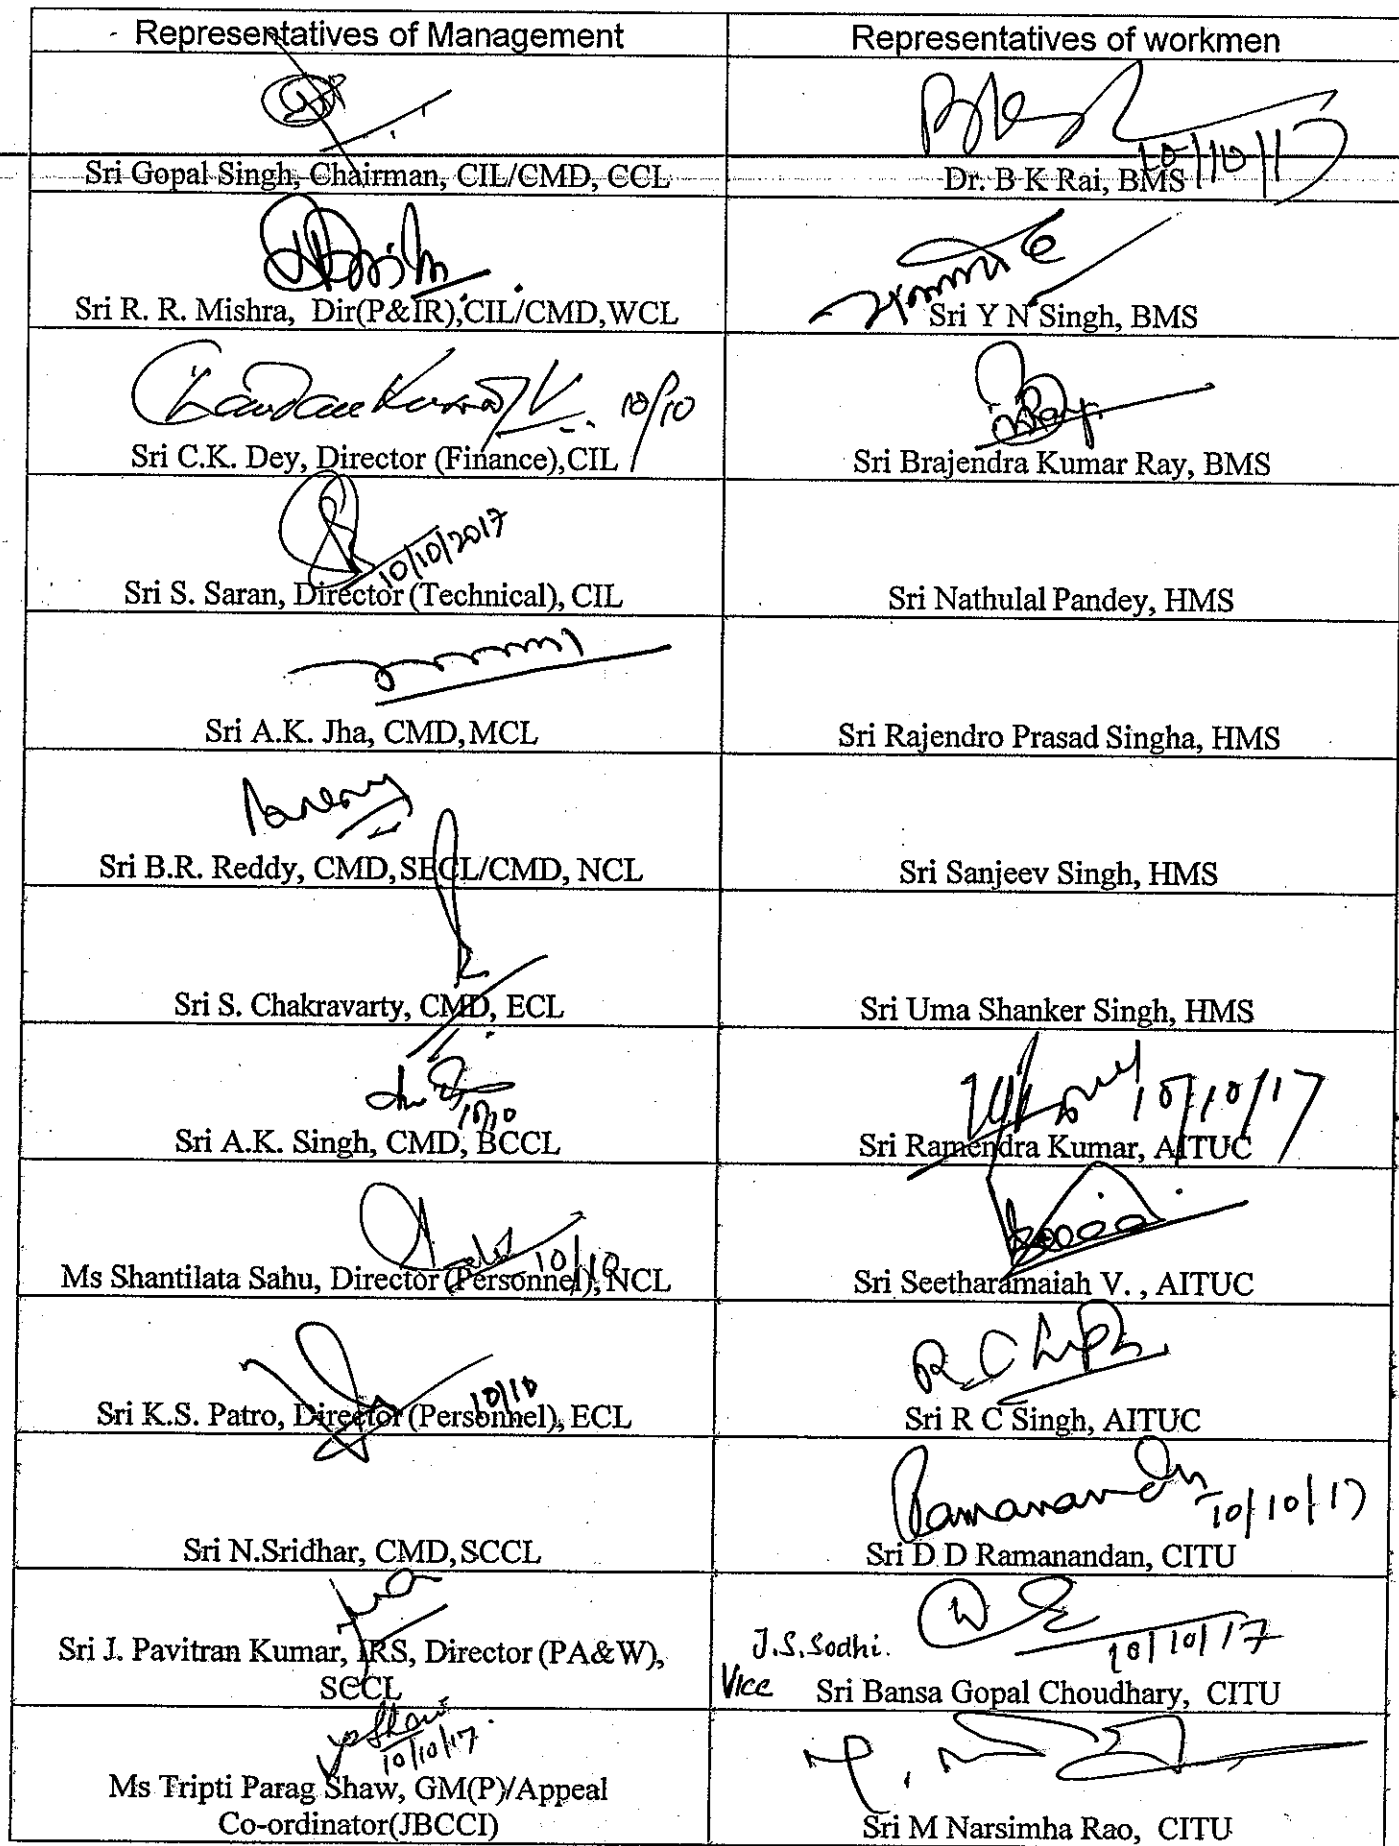 Representatives of Management
Representatives of workmen
Sri Gopal Singh, Chairman, CIL/CMD, CCL
10/10/17
Dr. B K Rai, BMS
Sri R. R. Mishra, Dir(P&IR),CIL/CMD,WCL
Sri Y N Singh, BMS
10/10
Sri C.K. Dey, Director (Finance),CIL
Sri Brajendra Kumar Ray, BMS
10/10/2017
Sri S. Saran, Director (Technical), CIL
Sri Nathulal Pandey, HMS
Sri A.K. Jha, CMD,MCL
Sri Rajendro Prasad Singha, HMS
Sri B.R. Reddy, CMD,SECL/CMD, NCL
Sri Sanjeev Singh, HMS
Sri S. Chakravarty, CMD, ECL
Sri Uma Shanker Singh, HMS
10/10
Sri A.K. Singh, CMD, BCCL
10/10/17
Sri Ramendra Kumar, AITUC
10/10
Ms Shantilata Sahu, Director (Personnel), NCL
Sri Seetharamaiah V. , AITUC
10/10
Sri K.S. Patro, Director (Personnel), ECL
Sri R C Singh, AITUC
Sri N.Sridhar, CMD,SCCL
Ramanandan 10/10/17
Sri D D Ramanandan, CITU
Sri J. Pavitran Kumar, IRS, Director (PA&W),
SCCL
J.S.Sodhi. 10/10/17
Vice Sri Bansa Gopal Choudhary, CITU
Shaw
10/10/17.
Ms Tripti Parag Shaw, GM(P)/Appeal
Co-ordinator(JBCCI)
Sri M Narsimha Rao, CITU